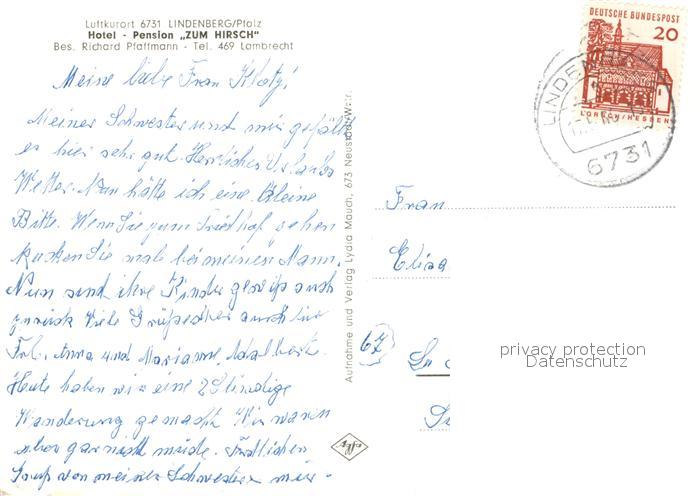 Luftkurort 6731 LINDENBERG/Pfalz
Hotel - Pension „ZUM HIRSCH"
Bes. Richard Pfaffmann - Tel. 469 Lambrecht
Meine liebe Frau Klotz!
Meiner Schwester und mir gefällt
es hier sehr gut. Herrliches Urlaubs
Wetter. Nun hätte ich eine kleine
Bitte. Wenn Sie zum Friedhof gehen
kucken Sie mal bei meinen Mann.
Nun sind ihre Kinder gewiß auch
zurück Viele Grüße auch für
Frl. Anna und Marianne, Adalbert.
Heute haben wir eine 2 Stündige
Wanderung gemacht Wir waren
aber gar nicht müde. Freundlichen
Gruß von meiner Schwester mir -
Aufnahme und Verlag Lydia Mauch, 673 Neustadt/Wstr.
Agfa
DEUTSCHE BUNDESPOST
20
LORSCH/HESSEN
LINDENBERG
6731
Frau
Elisa
67
privacy protection
Datenschutz